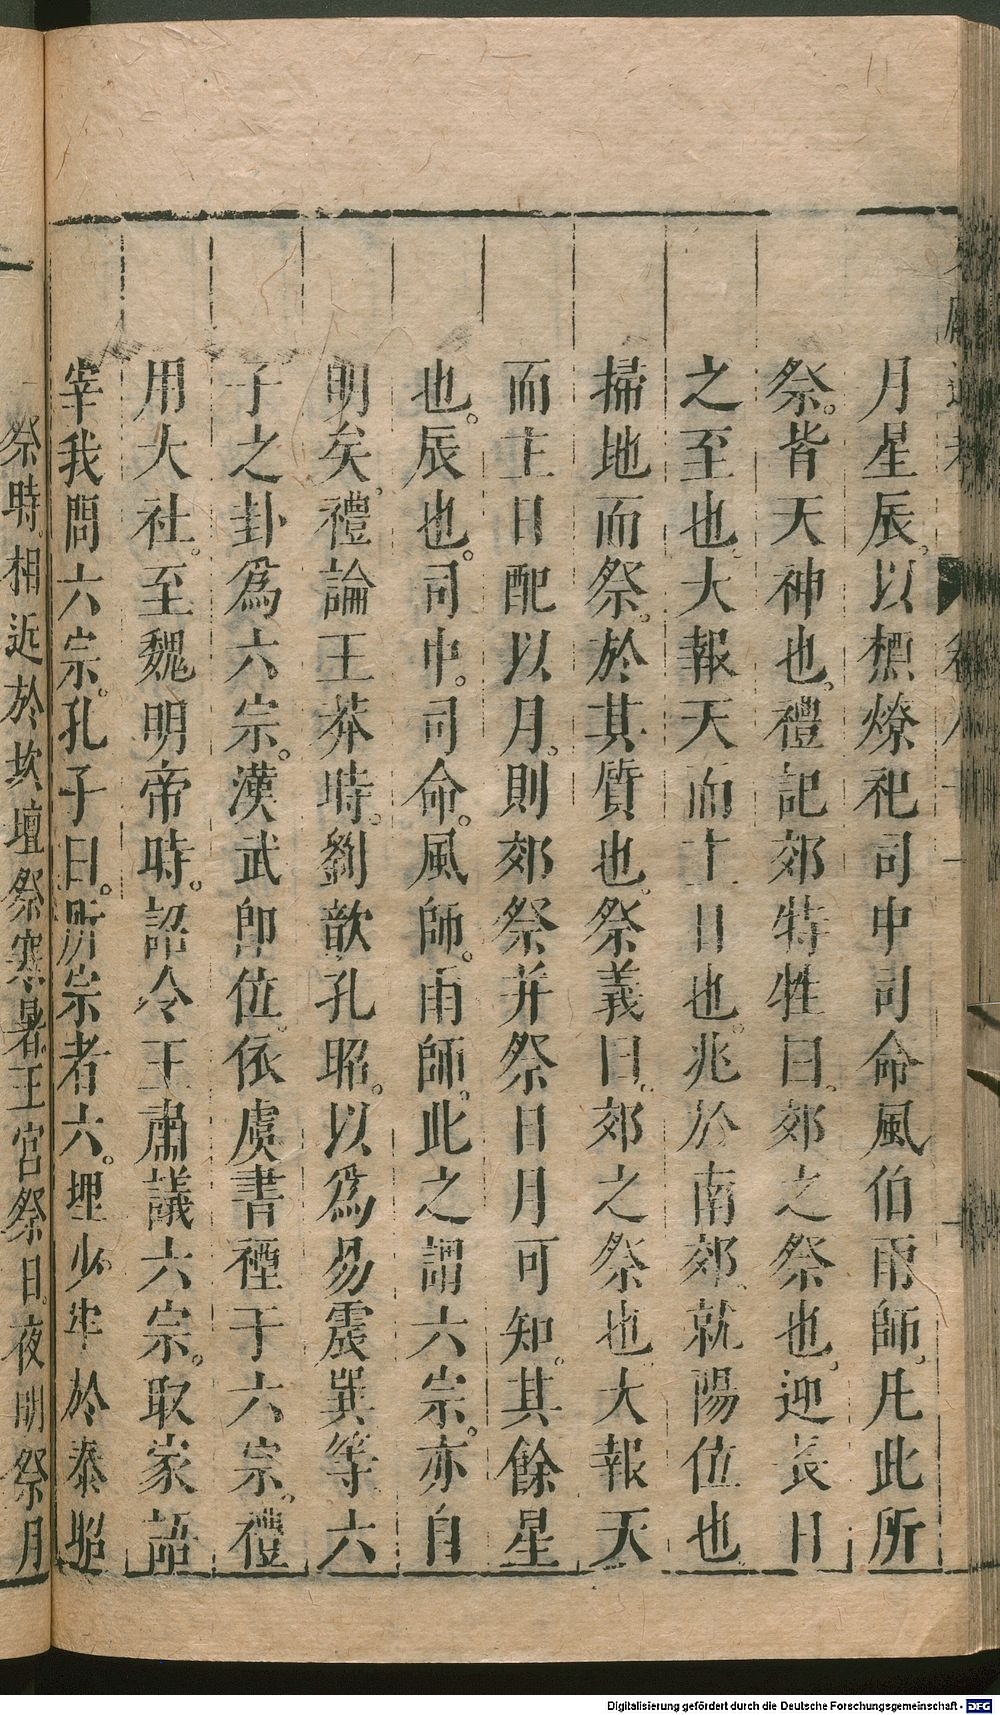 月星辰。以槱燎祀司中司命風伯雨師。凡此所
祭。皆天神也。禮記郊特牲曰。郊之祭也。迎長日
之至也。大報天而主日也。兆於南郊。就陽位也
掃地而祭。於其質也。祭義曰。郊之祭也。大報天
而主日配以月。則郊祭并祭日月可知。其餘星
也。辰也。司中。司命。風師。雨師。此之謂六宗。亦自
明矣。禮論王莽時。劉歆孔昭。以爲易震巽等六
子之卦爲六宗。漢武即位。依虞書禋于六宗。禮
用大社。至魏明帝時。詔令王肅議六宗。取家語
宰我問六宗。孔子曰。所宗者六。埋少牢於泰昭
祭時。相近於坎壇祭寒暑。王宮祭日。夜明祭月
Digitalisierung gefördert durch die Deutsche Forschungsgemeinschaft - DFG